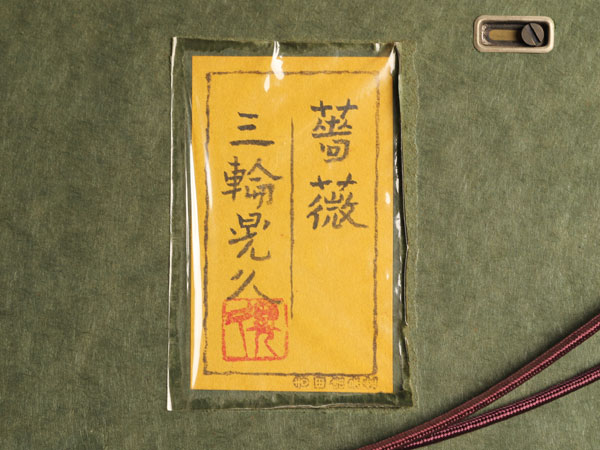 薔薇
三輪晃久